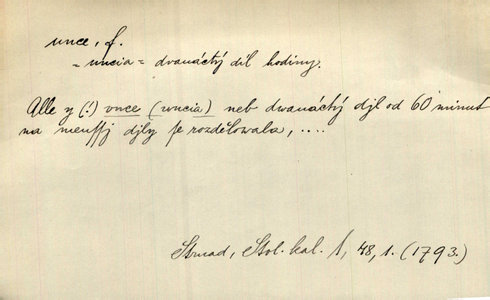 unce, f.
= uncia = dvanáctý díl hodiny.
Alle y (!) vnce (vncia) neb dwanáctý djl od 60 minut
na menssj djly se rozdělowala, ....
Strnad, Stol. kal. 1, 48, 1. (1793.)